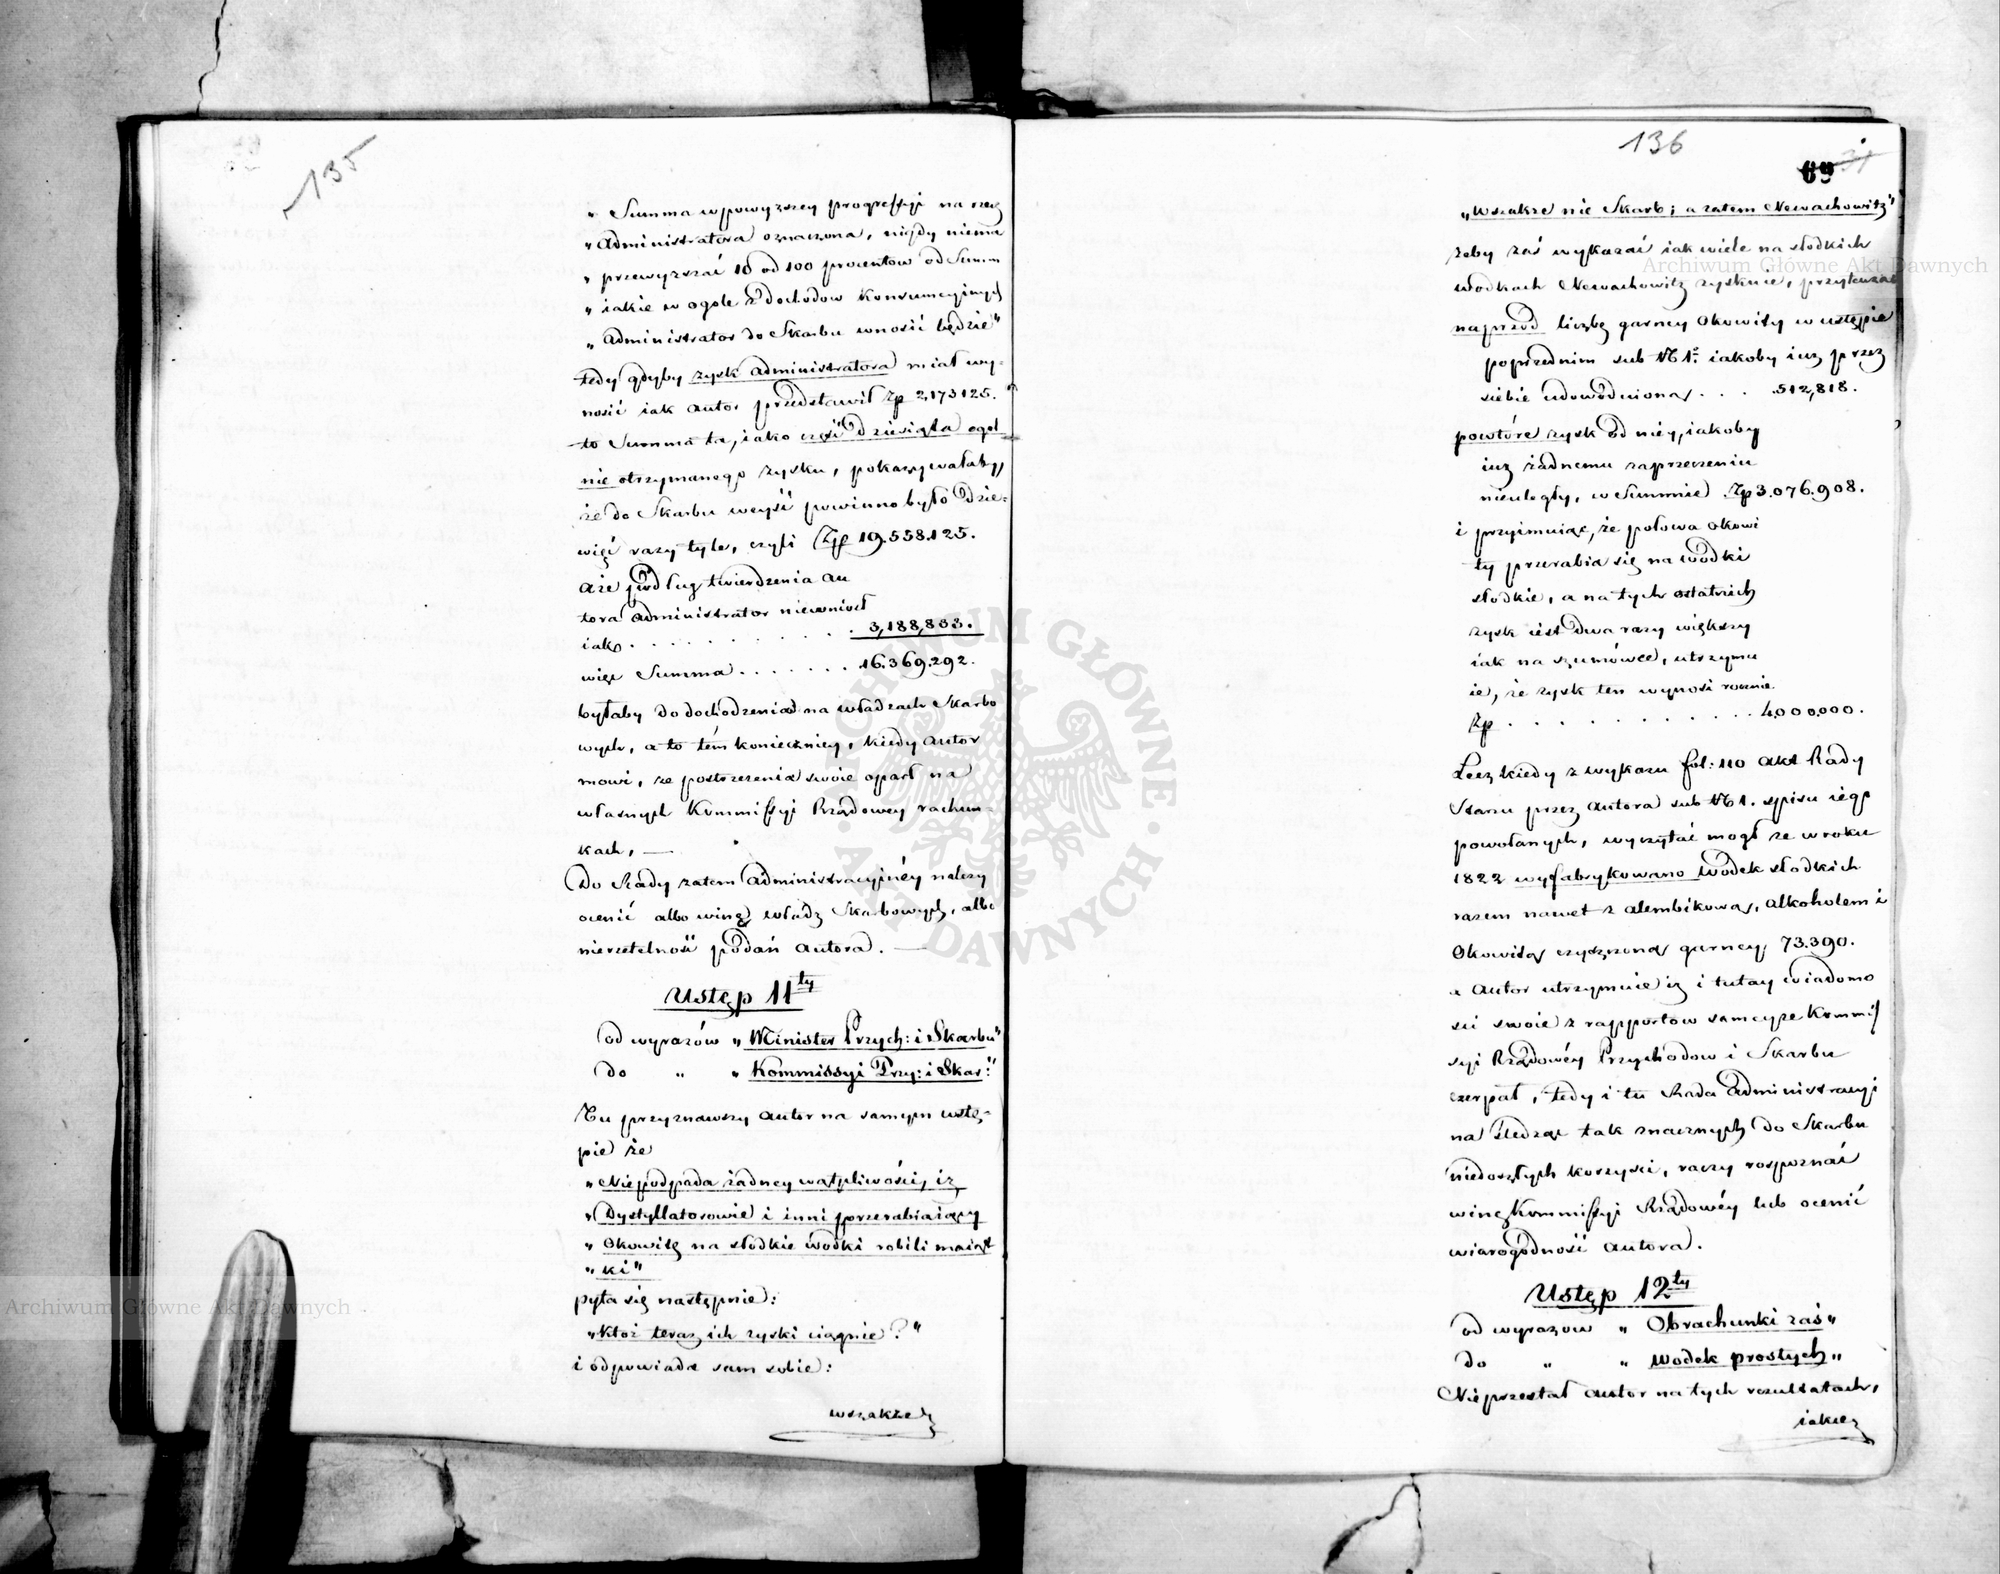 135
„ Summa w powyzszey progressyi na rzecz
„ Administratora oznaczona, nigdy niema
„ przewyzszać 10 od 100 procentow od Summ
„ iakie w ogole z dochodow Konsumcyinych
„ Administrator do Skarbu wnosić będzie"
tedy gdyby zysk Administratora miał wy-
nosić iak autor przedstawił Zp 2,173125.
to Summa ta, iako część dziesiąta ogol
nie otrzymanego zysku, pokazywałaby,
że do Skarbu weyść powinno było dzie-
więć razy tyle, czyli Zp 19.558.125.
a że podług twierdzenia au
tora administrator niewniosł
iak . . . . . . . . . . 3,188,833.
więc Summa . . . . . . . 16.369.292.
byłaby do dochodzenia na władzach Skarbo
wych, a to tém konieczniey, kiedy autor
mowi, ze postrzezenia swoie oparł na
własnych Kommissyi Rządowey rachun-
kach, —
Do Rady zatem Administracyinéy nalezy
ocenić albo winę władz Skarbowych, albo
nierzetelność podań autora. —
Ustęp 11ty
od wyrazów „ Minister Przych: i Skarbu"
do „ „ Kommissyi Przy: i Skar:"
Tu przyznawszy autor na samym wstę-
pie że
„ Niepodpada żadney wątpliwości, iz
„ Dystyllatorowie i inni przerabiaiący
„ Okowitę na słodkie wodki robili maiąt
„ ki"
pyta się następnie:
„ Któż teraz ich zyski ciągnie?"
i odpowiada sam sobie:
wszakże
136
69 31
„ Wszakze nie Skarb; a zatem Newachowitz"
żeby zaś wykazać iak wiele na słodkich
wodkach Newachowitz zyskuie, przytacza
naprzod liczbę garncy Okowity w ustępie
poprzednim sub N 1º iakoby iuz przez
siebie udowodnioną . . . 512,818.
powtóre zysk od niéy, iakoby
iuz żadnemu zaprzeczeniu
nieuległy, w Summie Zp 3.076.908.
i przyimuiąc, że połowa okowi
ty przerabia się na wodki
słodkie, a na tych ostatnich
zysk iest dwa razy większy
iak na szumówce, utrzymu
ie, że zysk ten wynosi rocznie
Zp . . . . . . . . . . . . 4,000.000.
Lecz kiedy z wykazu fol: 110 akt Rady
Stanu przez autora sub N 1. spisu iego
powołanych, wyczytać mogł ze w roku
1822 wyfabrykowano Wodek słodkich
razem nawet z alembikową, alkoholem i
Okowitą czyszczoną garncy 73.390.
a Autor utrzymuie iz i tutay wiadomo
ści swoie z rapportow sameyze Kommis
syi Rządowéy Przychodow i Skarbu
czerpał, tedy i tu Rada Administracyi
na śledząc tak znacznych do Skarbu
niedoszłych korzyści, raczy rospoznać
winę Kommissyi Rządowéy lub ocenić
wiarogodność autora.
Ustęp 12ty
od wyrazow „ Obrachunki zaś „
do „ „ wodek prostych „
Nieprzestał autor na tych rezultatach,
iakie
Archiwum Główne Akt Dawnych
Archiwum Główne Akt Dawnych
ARCHIWUM GŁÓWNE · AKT DAWNYCH ·